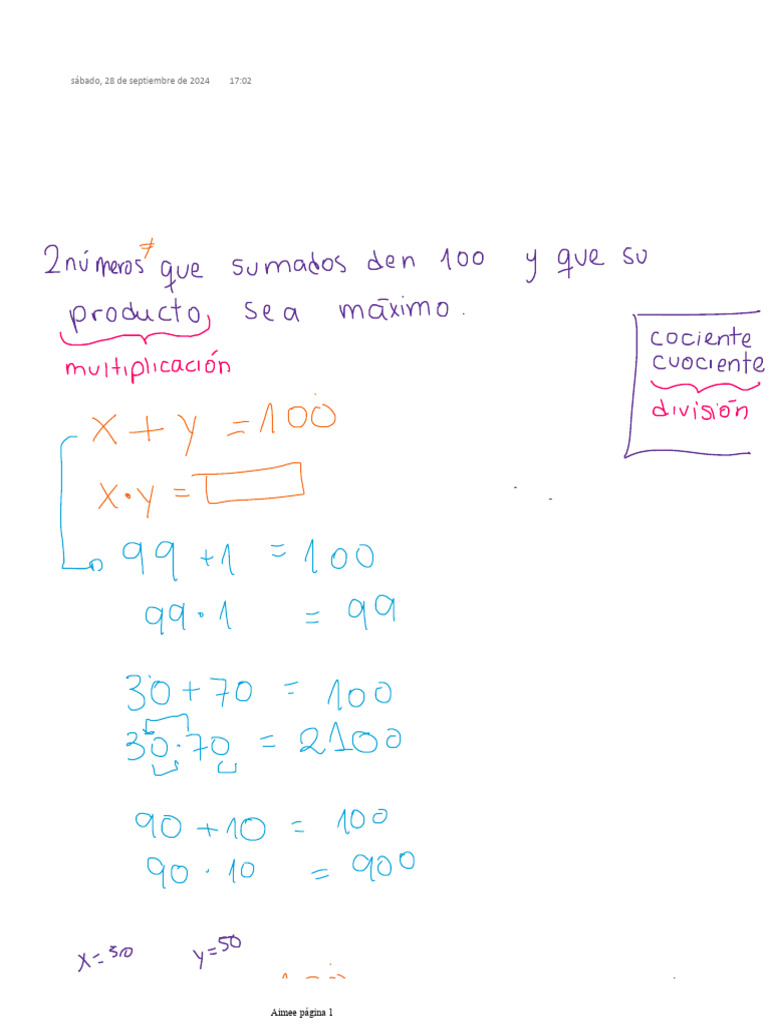 sábado, 28 de septiembre de 2024 17:02
2 números ≠ que sumados den 100 y que su
producto, sea máximo.
multiplicación
cociente
cuociente
división
x + y = 100
x · y =
99 + 1 = 100
99 · 1 = 99
30 + 70 = 100
30 · 70 = 2100
90 + 10 = 100
90 · 10 = 900
x = 50 y = 50
Aimee página 1